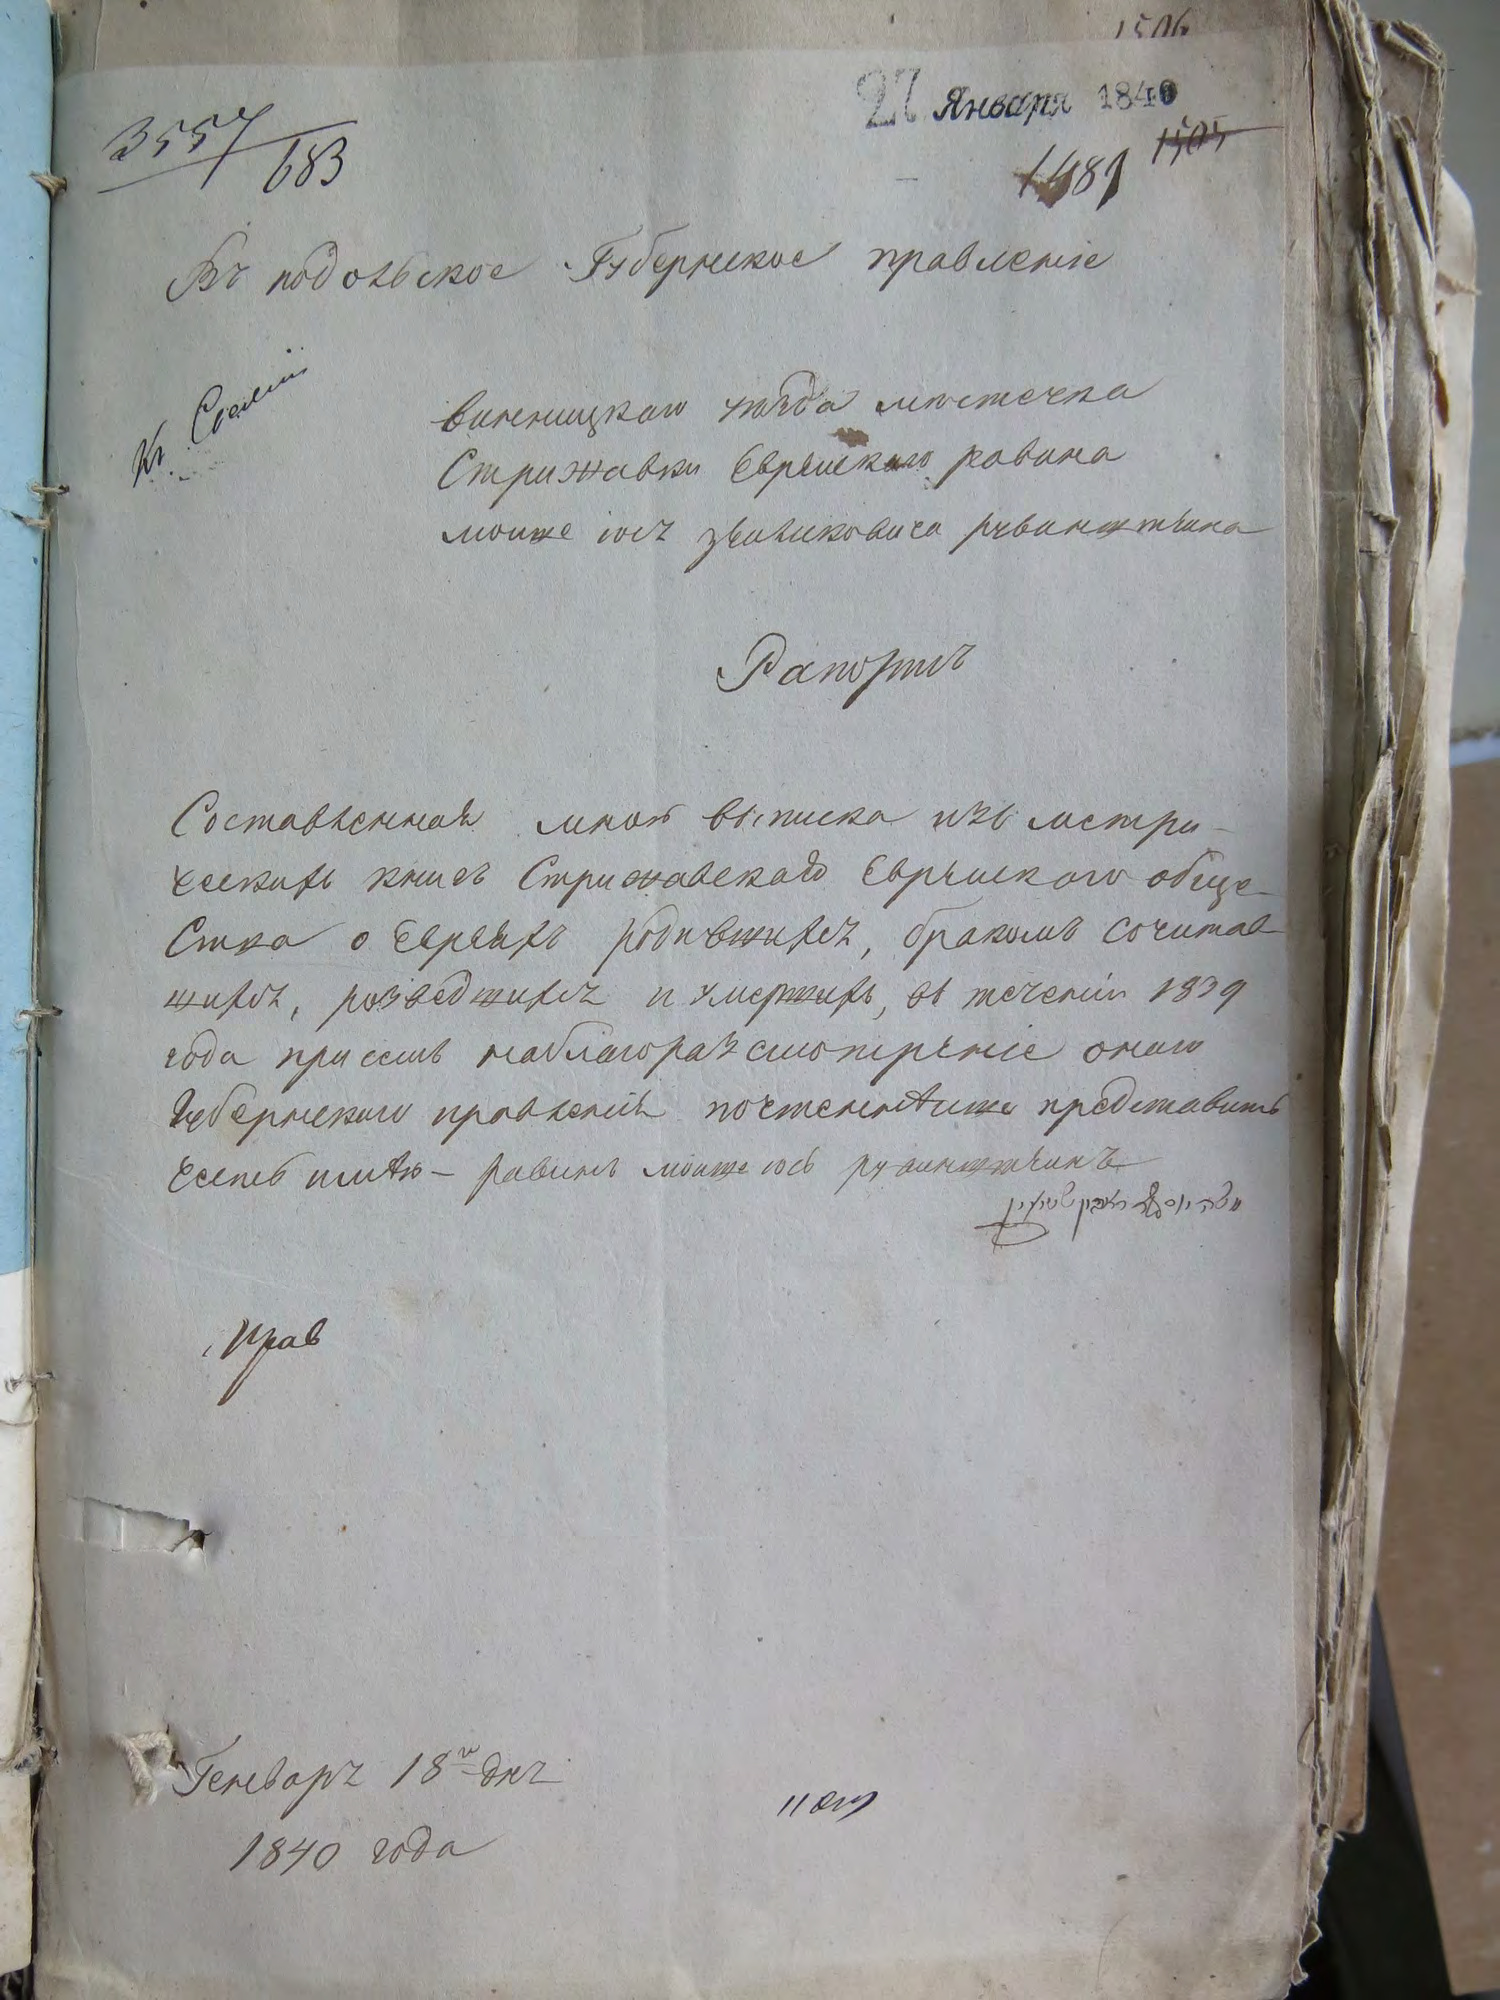 1506
27 Января 1840
3557/683
1481 1505
Въ подольское Губернское правленіе
Винницкаго уѣзда мѣстечка
Стрижавки Еврейскаго равина
мошке іосъ
Рапортъ
Составленная мною выписка изъ метри-
ческихъ книгъ Стрижавскаго Еврейскаго обще-
Ства о Евреяхъ родившихсъ, бракомъ сочитав
шихсъ, розведшихсъ и умершихъ, въ теченіи 1839
года при семъ наблагоразсмотреніе онаго
Губернского правленія почтеннѣише представить
Честь имѣю – равинъ мошке іось
משה יוסף
Прав
Генваръ 18го днъ
1840 года